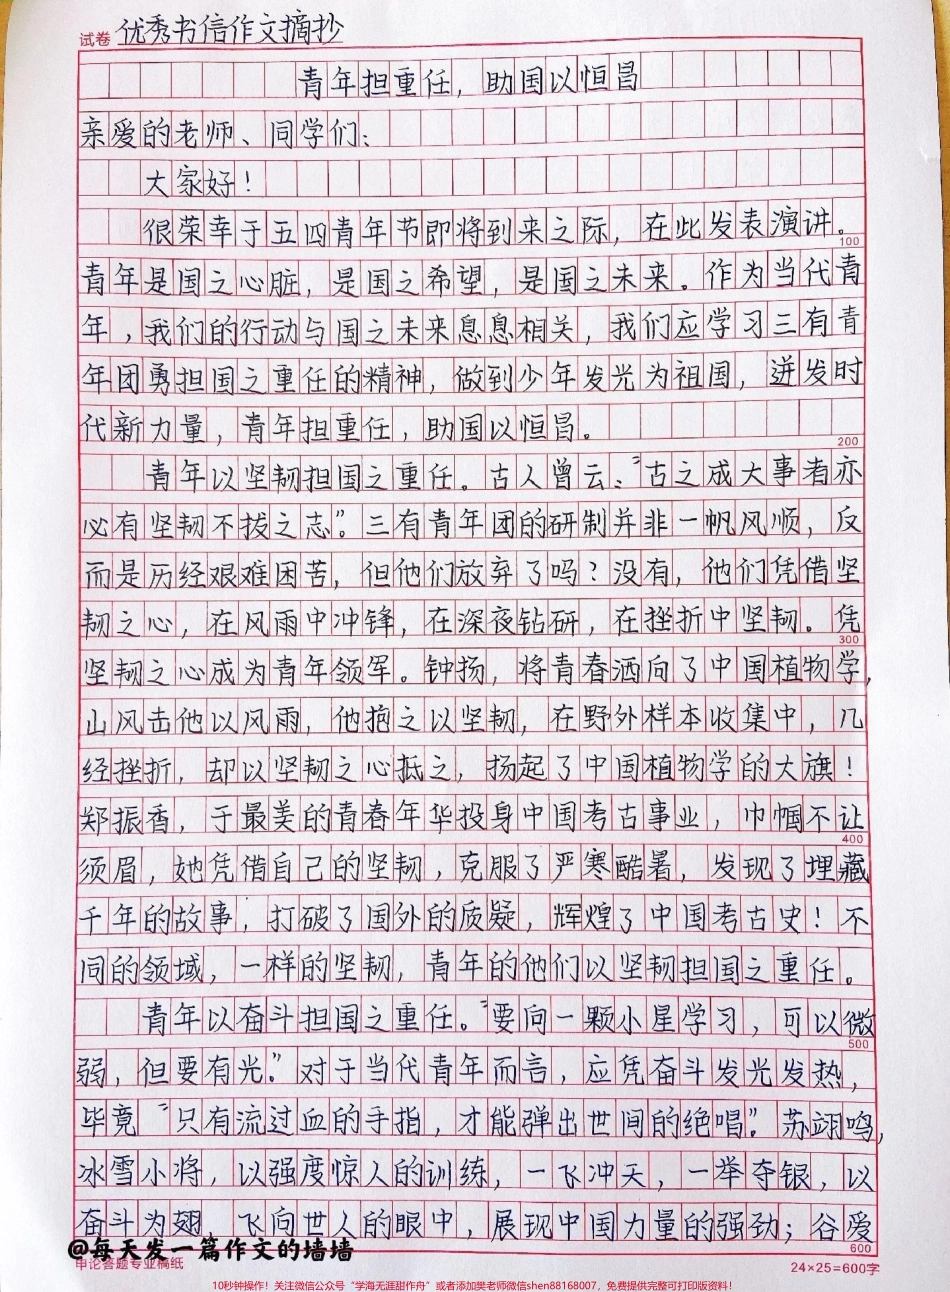 试卷 优秀书信作文摘抄
青年担重任，助国以恒昌
亲爱的老师、同学们：
大家好！
很荣幸于五四青年节即将到来之际，在此发表演讲。
100
青年是国之心脏，是国之希望，是国之未来。作为当代青
年，我们的行动与国之未来息息相关，我们应学习三有青
年团勇担国之重任的精神，做到少年发光为祖国，迸发时
代新力量，青年担重任，助国以恒昌。
200
青年以坚韧担国之重任。古人曾云："古之成大事者亦
必有坚韧不拔之志"。三有青年团的研制并非一帆风顺，反
而是历经艰难困苦，但他们放弃了吗？没有，他们凭借坚
韧之心，在风雨中冲锋，在深夜钻研，在挫折中坚韧。凭
300
坚韧之心成为青年领军。钟扬，将青春洒向了中国植物学，
山风击他以风雨，他抱之以坚韧，在野外样本收集中，几
经挫折，却以坚韧之心抵之，扬起了中国植物学的大旗！
郑振香，于最美的青春年华投身中国考古事业，巾帼不让
400
须眉，她凭借自己的坚韧，克服了严寒酷暑，发现了埋藏
千年的故事，打破了国外的质疑，辉煌了中国考古史！不
同的领域，一样的坚韧，青年的他们以坚韧担国之重任。
青年以奋斗担国之重任。"要向一颗小星学习，可以微
500
弱，但要有光。"对于当代青年而言，应凭奋斗发光发热，
毕竟"只有流过血的手指，才能弹出世间的绝唱"。苏翊鸣，
冰雪小将，以强度惊人的训练，一飞冲天，一举夺银，以
奋斗为翅，飞向世人的眼中，展现中国力量的强劲；谷爱
600
@每天发一篇作文的墙墙
申论答题专业稿纸
24×25=600字
10秒钟操作！关注微信公众号“学海无涯甜作舟”或者添加樊老师微信shen88168007，免费提供完整可打印版资料！